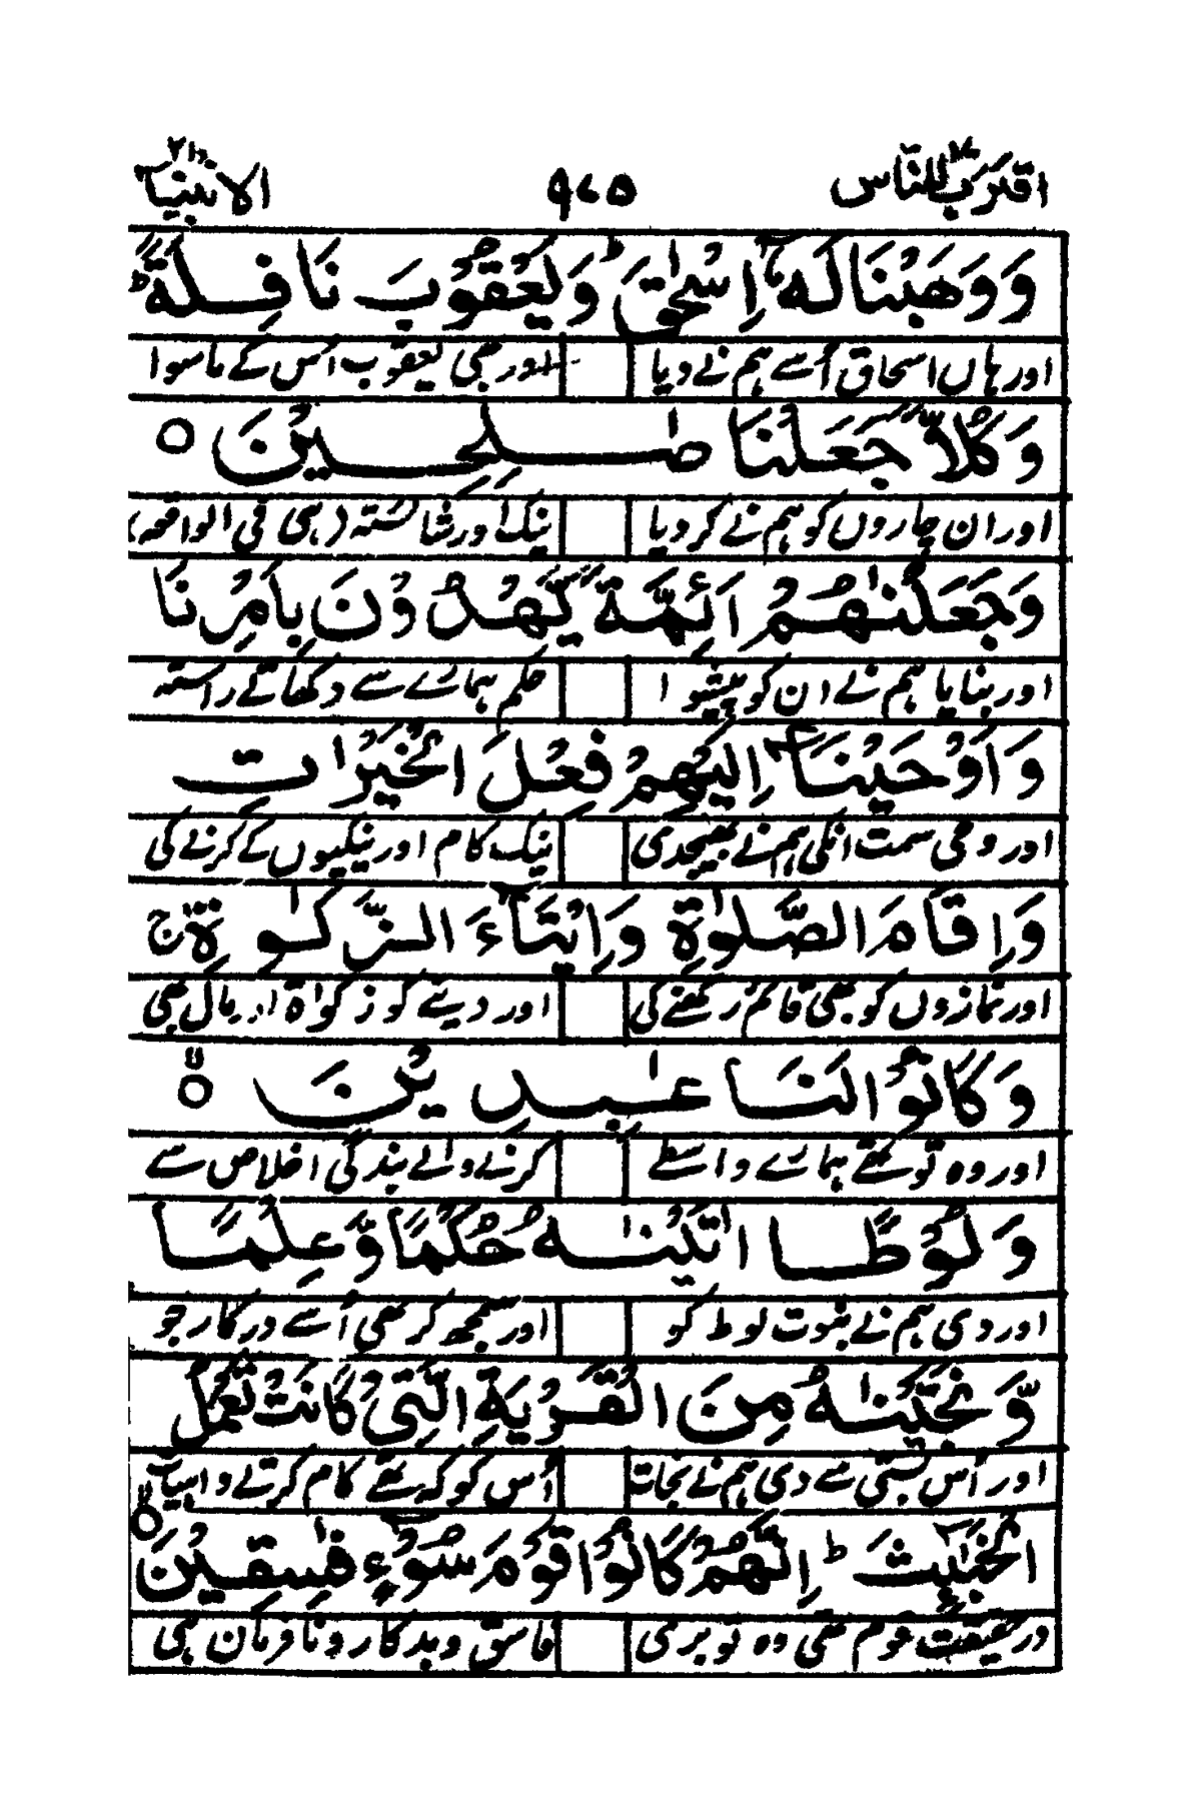 اقترب للناس ١٧ ٩٧٥ الانبیآء ٢١
وَوَهَبْنَا لَهٗۤ اِسْحٰقَ ؕ وَیَعْقُوْبَ نَافِلَةً ؕ
اور ہاں اسحاق اُسے ہم نے دیا اور بھی یعقوب اُس کے ماسوا
وَكُلًّا جَعَلْنَا صٰلِحِیْنَ ○
اور ان چاروں کو ہم نے کر دیا نیک اور شائستہ (ہی فی الواقعہ)
وَجَعَلْنٰهُمْ اَئِمَّةً یَّهْدُوْنَ بِاَمْرِنَا
اور بنایا ہم نے ان کو پیشوا حکم ہمارے سے دکھاتے راستہ
وَاَوْحَیْنَاۤ اِلَیْهِمْ فِعْلَ الْخَیْرٰتِ
اور وحی سمت انکی ہم نے بھیجدی نیک کام اور نیکیوں کے کرنے کی
وَاِقَامَ الصَّلٰوةِ وَاِیْتَآءَ الزَّكٰوةِ ۚ
اور نمازوں کو بھی قائم رکھنے کی اور دینے کو زکوٰة اور مال بھی
وَكَانُوْا لَنَا عٰبِدِیْنَ ○
اور وہ تو تھے ہمارے واسطے کرنے والے بندگی اخلاص سے
وَلُوْطًا اٰتَیْنٰهُ حُكْمًا وَّعِلْمًا
اور دی ہم نے نبوت لوط کو اور سمجھ کر بھی اُسے درکار جو
وَّنَجَّیْنٰهُ مِنَ الْقَرْیَةِ الَّتِیْ كَانَتْ تَّعْمَلُ
اور اُس بستی سے دی ہم نے نجات اُس کو کہ تھے کام کرتے واہیات
الْخَبٰٓئِثَ ؕ اِنَّهُمْ كَانُوْا قَوْمَ سَوْءٍ فٰسِقِیْنَ ○
درحقیقت قوم تھی وہ تو بری فاسق و بدکار و نافرمان بھی